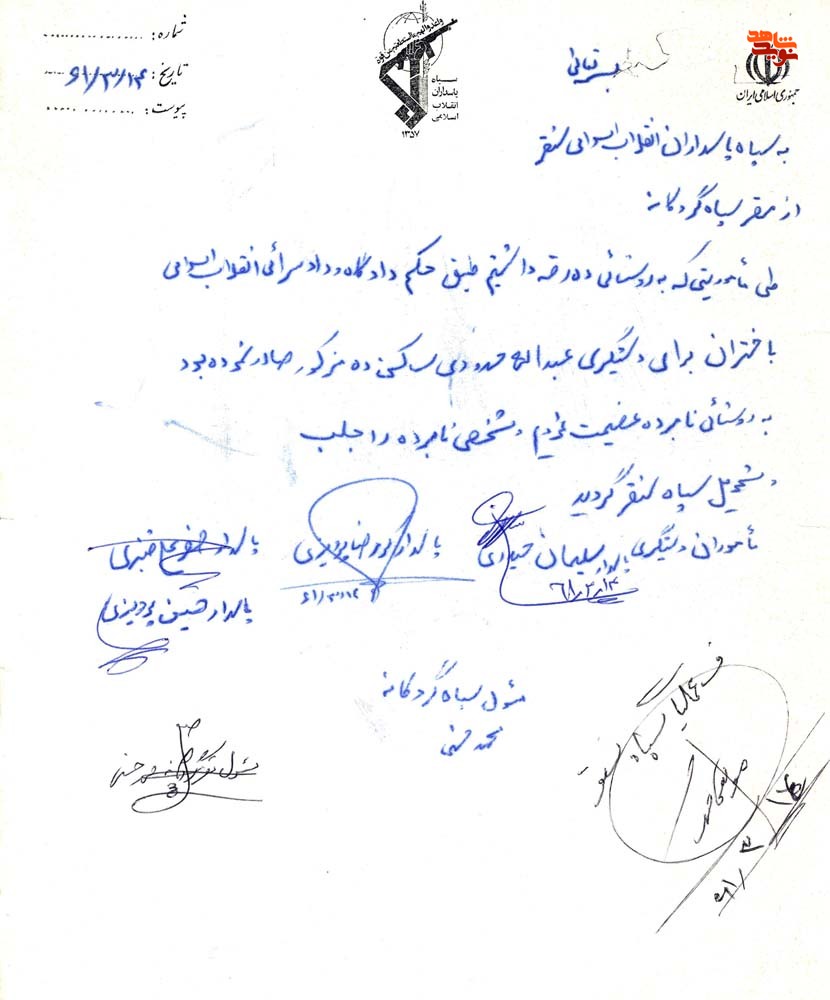 شماره: ..................
تاریخ: ۶۱/۳/۱۴
پیوست: ..................
سپاه
پاسداران
انقلاب
اسلامی
۱۳۵۷
نوید شاهد
جمهوری اسلامی ایران
بسمه تعالی
به سپاه پاسداران انقلاب اسلامی سنقر
از مقر سپاه گردکانه
طی مأموریتی که به روستائی ده رقه داشتیم طبق حکم دادگاه و دادسرائی انقلاب اسلامی
باختران برای دستگیری عبداله محدودی ساکن ده مزکور صادر نموده بود
به روستائی نامبرده عضیمت نمودیم و شخصی نامبرده را جلب
و تحویل سپاه سنقر گردید
مأموران دستگیری پاسدار سلیمان پاسدار پرویزی پاسدار
۶۱/۳/۱۴
پاسدار پرویزی
مسئول سپاه گردکانه
محمد حسنی
مسئول سپاه گردکانه محمد حسنی
ف عملیات سپاه سنقر